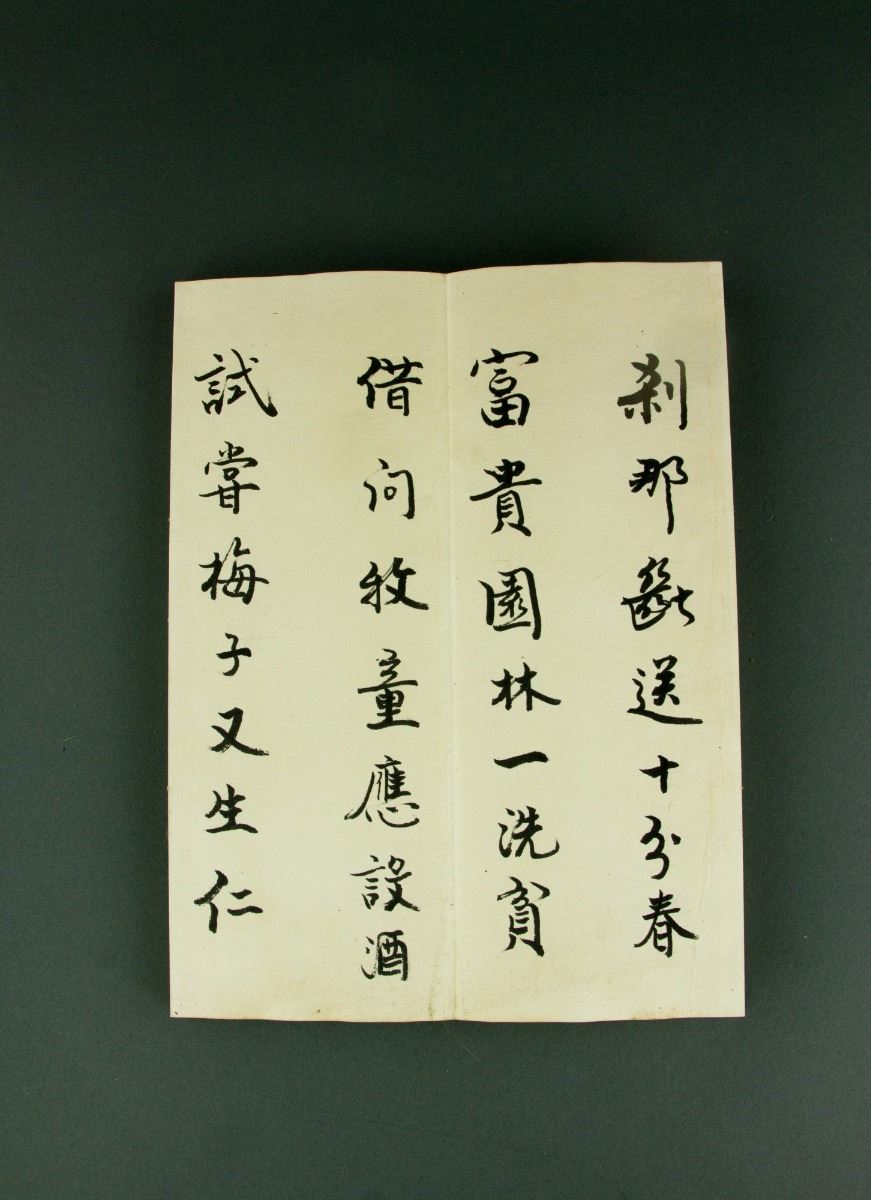 刹那斷送十分春
富貴園林一洗貧
借问牧童應設酒
試嘗梅子又生仁